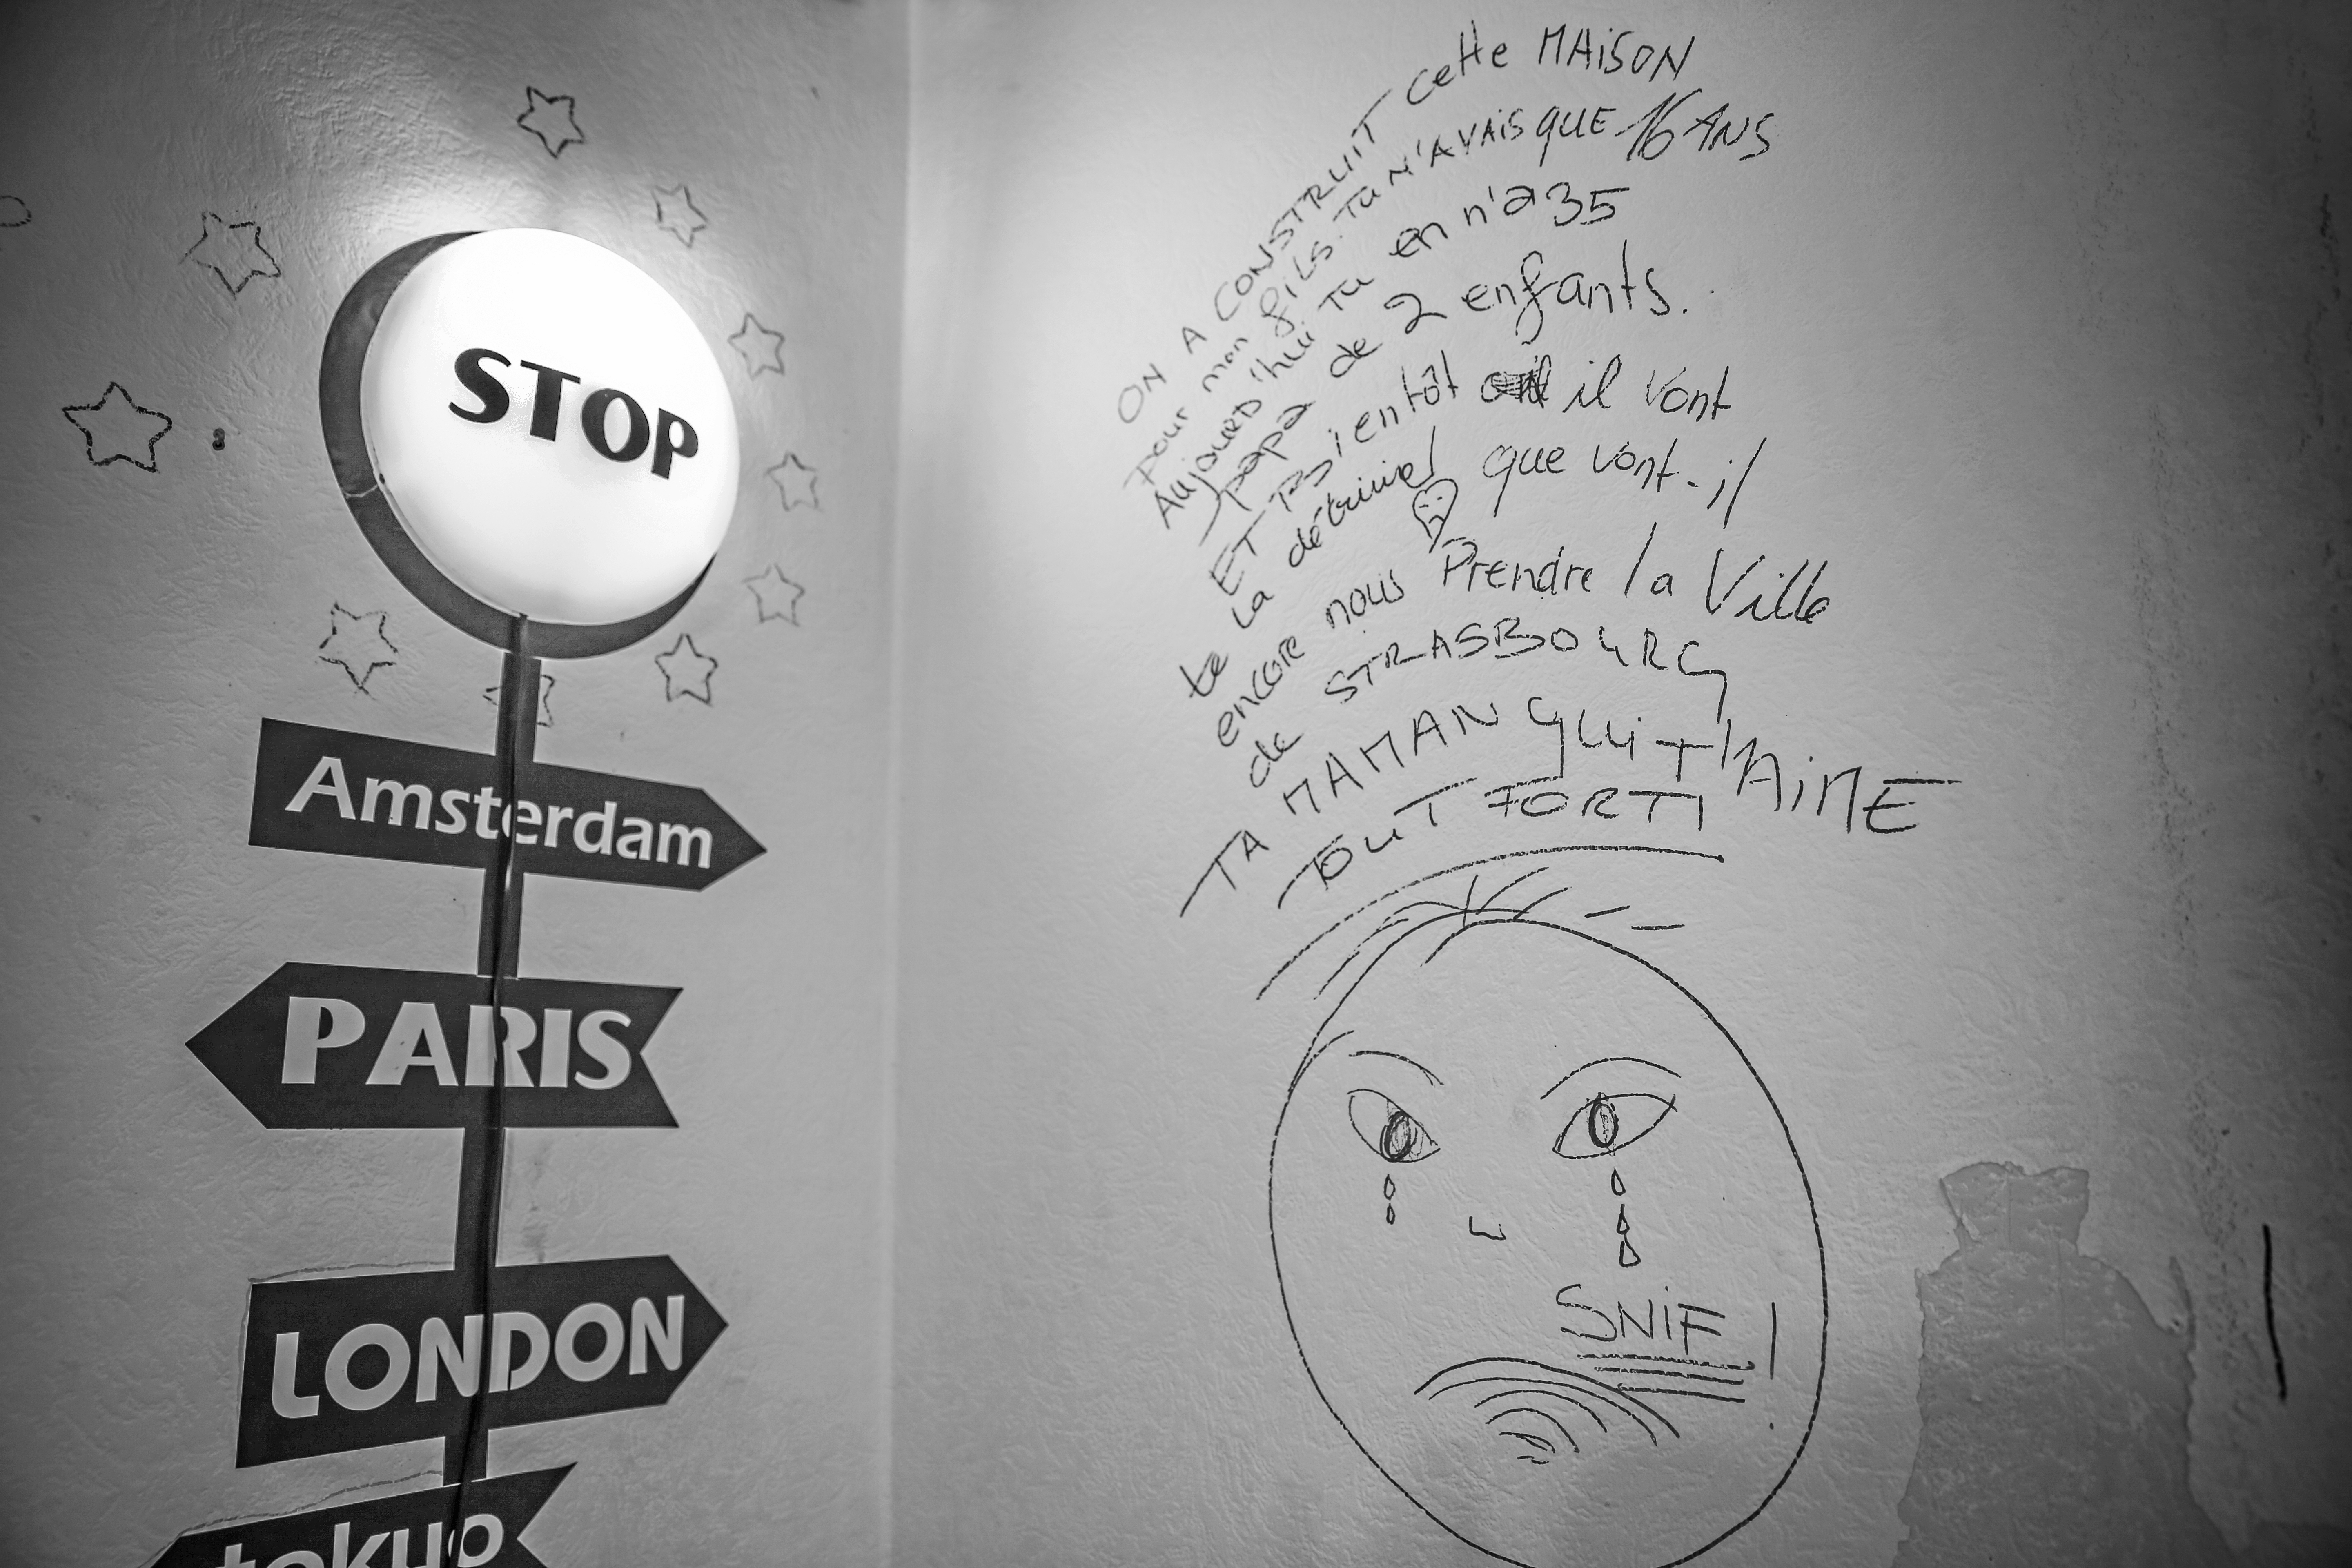 STOP
Amsterdam
PARIS
LONDON
tokyo
ON A CONSTRUIT cette MAISON
pour mon fils. Tu N'AVAIS QUE 16 ANS
Aujourd'hui Tu en n'a 35
papa de 2 enfants.
ET Bientôt il vont
te LA détruire! que vont-il
encore nous Prendre la Ville
de STRASBOURG
TA MAMAN qui T'AiME
TOUT FORT!
SNiF!